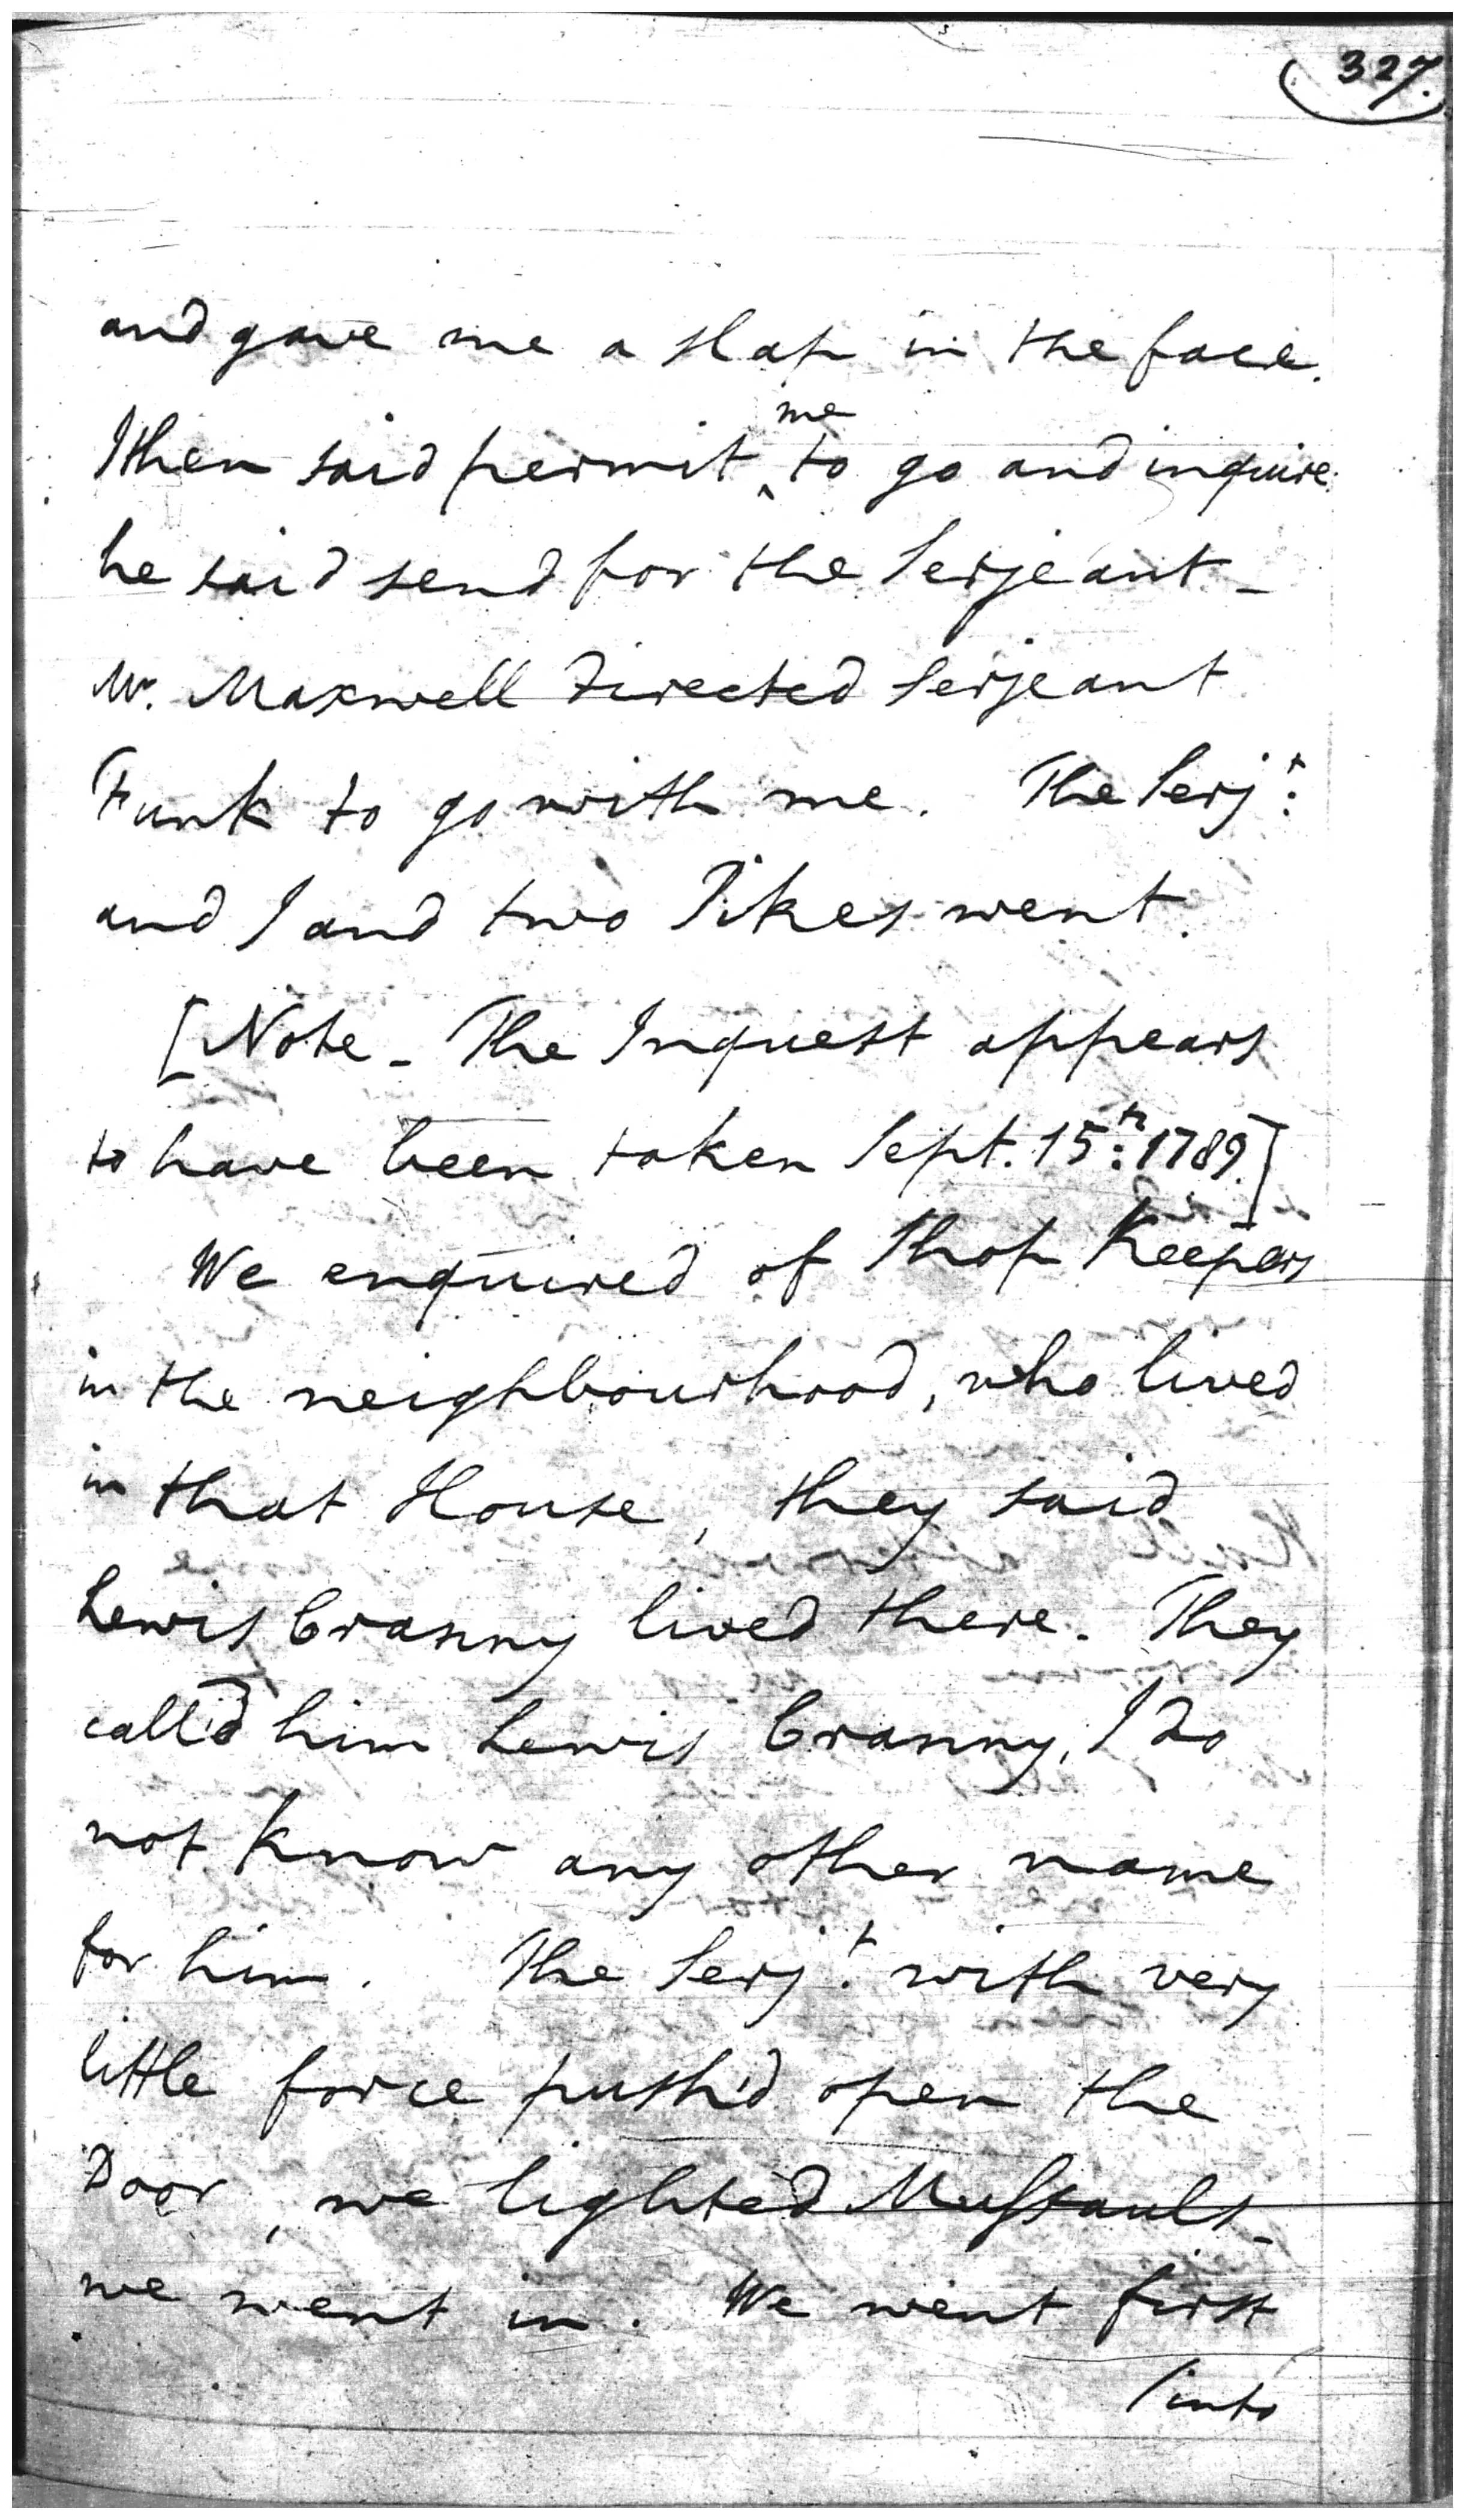 327.
and gave me a slap in the face.
I then said permit me to go and inquire.
he said send for the Serjeant _
Mr. Maxwell directed Serjeant
Funk to go with me. The Serjt:
and I and two Pikes went.
[Note _ The Inquest appears
to have been taken Sept. 15th: 1789.]
We enquired of Shop Keepers
in the neighbourhood, who lived
in that House, they said
Lewis Cranny lived there. They
call'd him Lewis Cranny, I do
not know any other name
for him. The Serjt. with very
little force push'd open the
Door, we lighted Mussauls _
we went in. We went first
/into